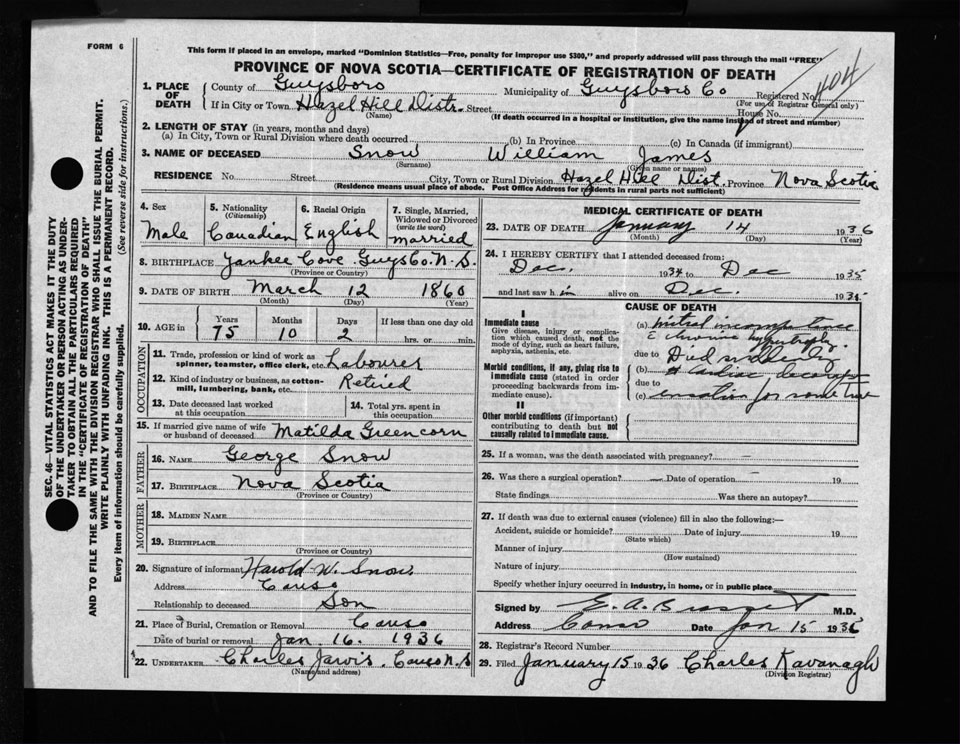 FORM 6
This form if placed in an envelope, marked "Dominion Statistics—Free, penalty for improper use $300," and properly addressed will pass through the mail "FREE"
PROVINCE OF NOVA SCOTIA—CERTIFICATE OF REGISTRATION OF DEATH
404
1. PLACE OF DEATH
County of Guysboro Municipality of Guysboro Co Registered No.
(For use of Registrar General only)
If in City or Town Hazel Hill Distr. Street House No.
(Name) (If death occurred in a hospital or institution, give the name instead of street and number)
2. LENGTH OF STAY (in years, months and days)
(a) In City, Town or Rural Division where death occurred (b) In Province (c) In Canada (if immigrant)
3. NAME OF DECEASED Snow William James
(Surname) (Given name or names)
RESIDENCE No. Street City, Town or Rural Division Hazel Hill Dist. Province Nova Scotia
(Residence means usual place of abode. Post Office Address for residents in rural parts not sufficient)
4. Sex Male
5. Nationality (Citizenship) Canadian
6. Racial Origin English
7. Single, Married, Widowed or Divorced (write the word) married
8. BIRTHPLACE Yankee Cove Guys Co. N.S.
(Province or Country)
9. DATE OF BIRTH March 12 1860
(Month) (Day) (Year)
10. AGE in Years Months Days If less than one day old
75 10 2 hrs. or min.
OCCUPATION
11. Trade, profession or kind of work as spinner, teamster, office clerk, etc. Labourer
12. Kind of industry or business, as cotton-mill, lumbering, bank, etc. Retired
13. Date deceased last worked at this occupation
14. Total yrs. spent in this occupation
15. If married give name of wife or husband of deceased Matilda Greencorn
FATHER
16. NAME George Snow
17. BIRTHPLACE Nova Scotia
(Province or Country)
MOTHER
18. MAIDEN NAME
19. BIRTHPLACE
(Province or Country)
20. Signature of informant Harold W. Snow
Address Canso
Relationship to deceased Son
21. Place of Burial, Cremation or Removal Canso
Date of burial or removal Jan 16. 1936
22. UNDERTAKER Charles Jarvis. Canso N.S
(Name and address)
MEDICAL CERTIFICATE OF DEATH
23. DATE OF DEATH January 14 1936
(Month) (Day) (Year)
24. I HEREBY CERTIFY that I attended deceased from:
Dec. 1934 to Dec 1935
and last saw h im alive on Dec. 1935
CAUSE OF DEATH
I
Immediate cause
Give disease, injury or complication which caused death, not the mode of dying, such as heart failure, asphyxia, asthenia, etc.
Morbid conditions, if any, giving rise to immediate cause (stated in order proceeding backwards from immediate cause).
II
Other morbid conditions (if important) contributing to death but not causally related to immediate cause.
(a) mitral incompetence
hypertrophy.
due to Died suddenly
(b) cardiac
due to
(c) for some time
25. If a woman, was the death associated with pregnancy? —
26. Was there a surgical operation? — Date of operation 19
State findings Was there an autopsy?
27. If death was due to external causes (violence) fill in also the following:—
Accident, suicide or homicide? Date of injury 19
(State which)
Manner of injury
(How sustained)
Nature of injury
Specify whether injury occurred in industry, in home, or in public place
Signed by E. A. M.D.
Address Canso Date Jan 15 1936
28. Registrar's Record Number
29. Filed January 15 1936 Charles Kavanagh
(Division Registrar)
SEC. 46—VITAL STATISTICS ACT MAKES IT THE DUTY
OF THE UNDERTAKER OR PERSON ACTING AS UNDER-
TAKER TO OBTAIN ALL THE PARTICULARS REQUIRED
IN THE "CERTIFICATE OF REGISTRATION OF DEATH"
AND TO FILE THE SAME WITH THE DIVISION REGISTRAR WHO SHALL ISSUE THE BURIAL PERMIT.
WRITE PLAINLY WITH UNFADING INK. THIS IS A PERMANENT RECORD.
Every item of information should be carefully supplied. (See reverse side for instructions.)